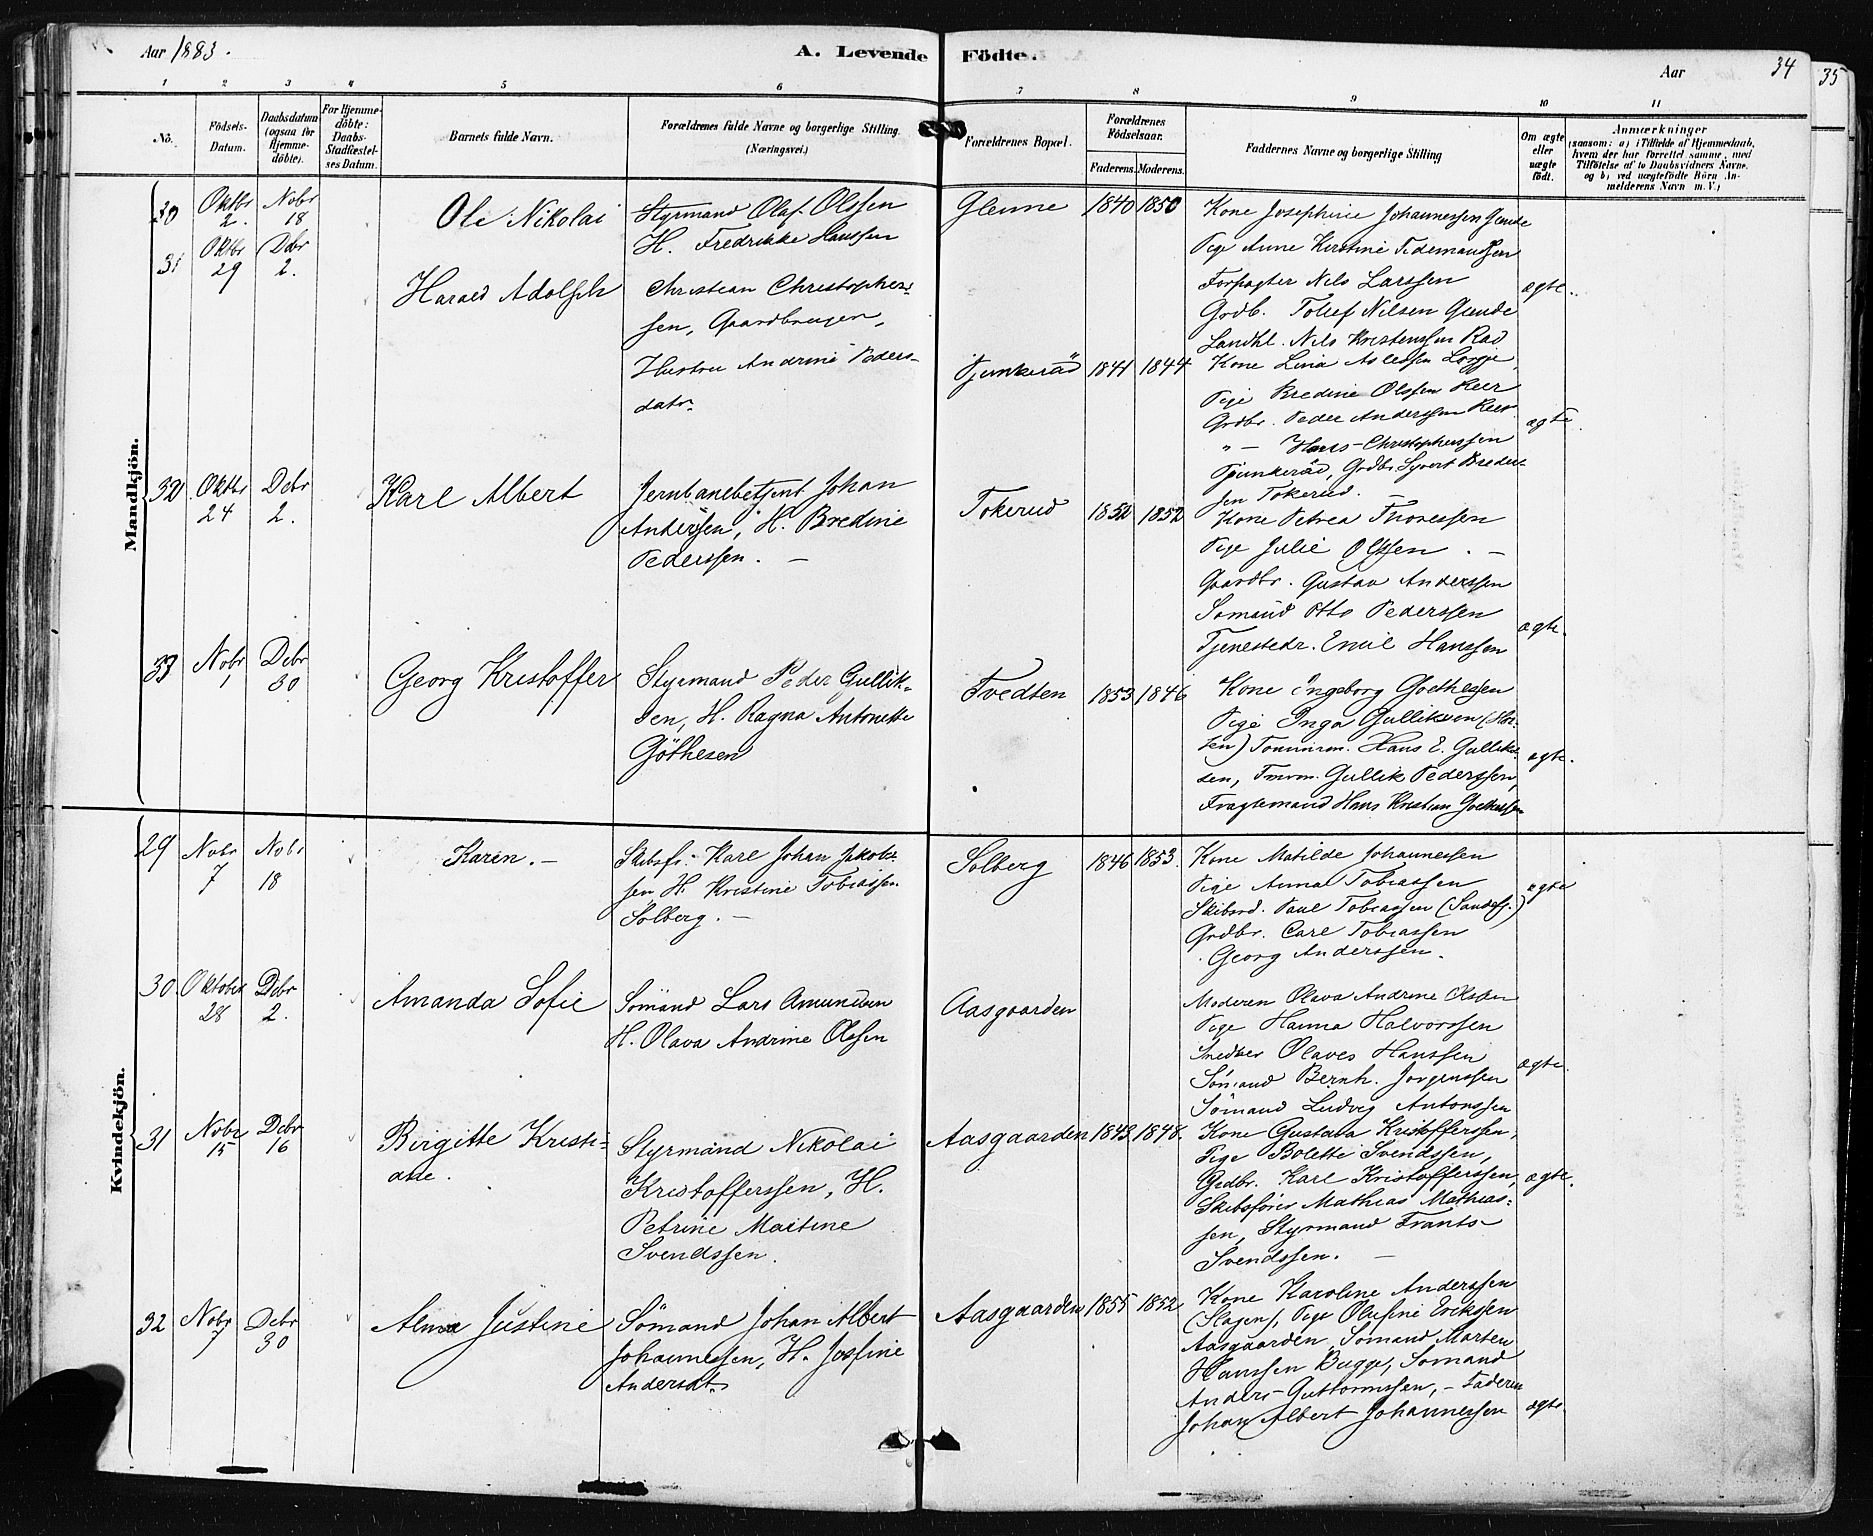 Aar 1883.
A. Levende Födte.
Aar
34
35
1 2 3 4 5 6 7 8 9 10 11
No.
Födsels-
Datum.
Daabsdatum
(ogsaa for
Hjemme-
döbte).
For Hjemme-
döbte:
Daabs-
Stadfæstel-
ses Datum.
Barnets fulde Navn.
Forældrenes fulde Navne og borgerlige Stilling.
(Næringsvei.)
Forældrenes Bopæl.
Forældrenes
Födselsaar.
Faderens. Moderens.
Faddernes Navne og borgerlige Stilling
Om ægte
eller
uægte
födt.
Anmærkninger
(saasom: a) i Tilfælde af Hjemmedaab,
hvem der har forrettet samme, med
Tilföielse af to Daabsvidners Navne,
og b) ved uægtefödte Börn An-
melderens Navn m.V.)
Mandkjön.
30
Oktbr
2.
Nobr
18
Ole Nikolai
Styrmand Olaf Olssen
H. Fredrikke Hanssen
Glenne
1840
1850
Kone Josephine Johannessen
Pige Anne Kirstine Tidemandsen
Forpagter Nils Larssen
Grdb. Tollef Nilsen
Landhl. Nils Kristenssen
ægte.
31
Oktbr
29
Debr
2.
Harald Adolph
Christian Christopher-
sen, Gaardbruger,
Hustru Andrine Peders-
datr.
1841
1844
Kone Lina
Pige Bredine Olssen
Grdbr. Peder Anderssen
" — Hans Christophersen
Grdbr. Syvert Breder-
sen Tokerud.
ægte
32
Oktbr
24
Debr
2.
Karl Albert
Jernbanebetjent Johan
Anderssen, H. Bredine
Pederssen. —
Tokerud
1852
1852
Kone Petrea Thoressen
Pige Julie Olssen. —
Gaardbr. Gustav Anderssen
Sömand Otto Pederssen
Tjenestedr. Emil Hanssen
ægte.
33
Nobr
1
Debr
30
Georg Kristoffer
Styrmand Peder Gullik-
sen, H. Ragna Antonette
Göthesen
Tvedten
1853
1846
Kone Ingeborg Goethessen
Pige Inga Gulliksen
sen) Tömmerm. Hans E. Gullik-
sen, Gullik Pederssen,
Fragtemand Hans Kristian Goethessen
ægte.
Kvindekjön.
29
Nobr
7
Nobr
18
Karen. —
Skibsf. Karl Johan Jakob-
sen H. Kristine Tobiassen
Solberg. —
Solberg
1846
1853.
Kone Matilde Johannessen
Pige Anna Tobiassen
Paul Tobiassen (Sandefj.)
Grdbr. Carl Tobiassen
Georg Anderssen.
ægte
30.
Oktober
28
Debr
2.
Amanda Sofie
Sömand Lars Amundsen
H. Olava Andrine Olssen
Aasgaarden
Moderen Olava Andrine Olssen
Pige Hanna Halvorssen
Snedker Olaves Hanssen
Sömand Bernh. Jorgenssen
Sömand Ludvig Antonssen
ægte.
31
Nobr
15
Debr
16
Birgitte Kristi-
ane.
Styrmand Nikolai
Kristofferssen, H.
Petrine Martine
Svendssen.
Aasgaarden
1843
1848.
Kone Gustava Kristofferssen,
Pige Bolette Svendssen,
Grdbr. Karl Kristofferssen,
Skibsförer Mathias Mathias-
sen, Styrmand Frants
Svendssen. —
ægte.
32
Nobr
7
Debr
30
Alma Justine
Sömand Johan Albert
Johannessen, H. Josfine
Andersdt.
Aasgaarden
1855
1852
Kone Karoline Anderssen
(Slagen), Pige Olufine Erikssen
Aasgaarden, Sömand Marten
Hanssen Bugge, Sömand
Anders Guttormssen, — Faderen
Johan Albert Johannessen
ægte